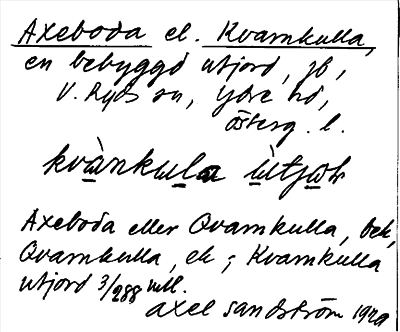 Axeboda el. Kvarnkulla,
en bebyggd utjord, jb,
V. Ryds sn, Ydre hd,
Österg. l.
kvànkula ùtjoƚ
Axeboda eller Qvarnkulla, bek,
Qvarnkulla, ek; Kvarnkulla
utjord 3/288 mtl.
Axel Sandström 192